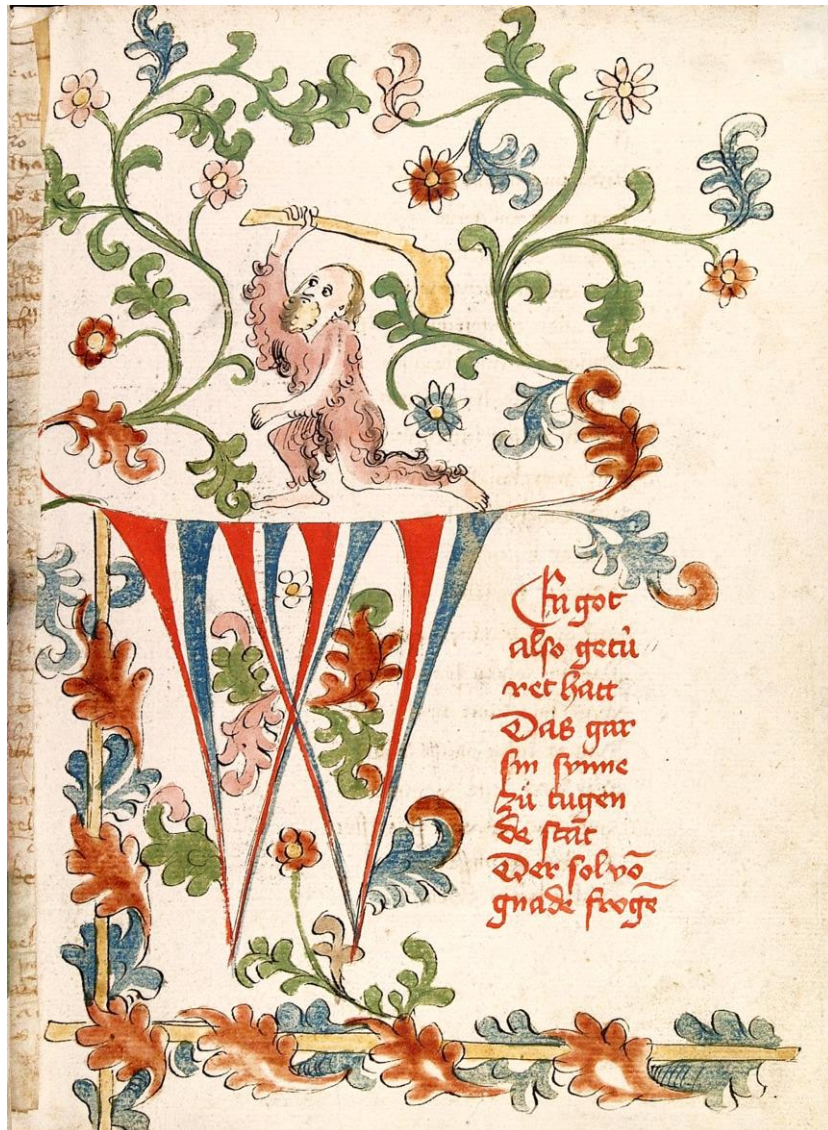 WEn got
also getú
ret hatt
Das gar
sin synne
zů tugen
de stāt
Der sol vō
gnade frogē